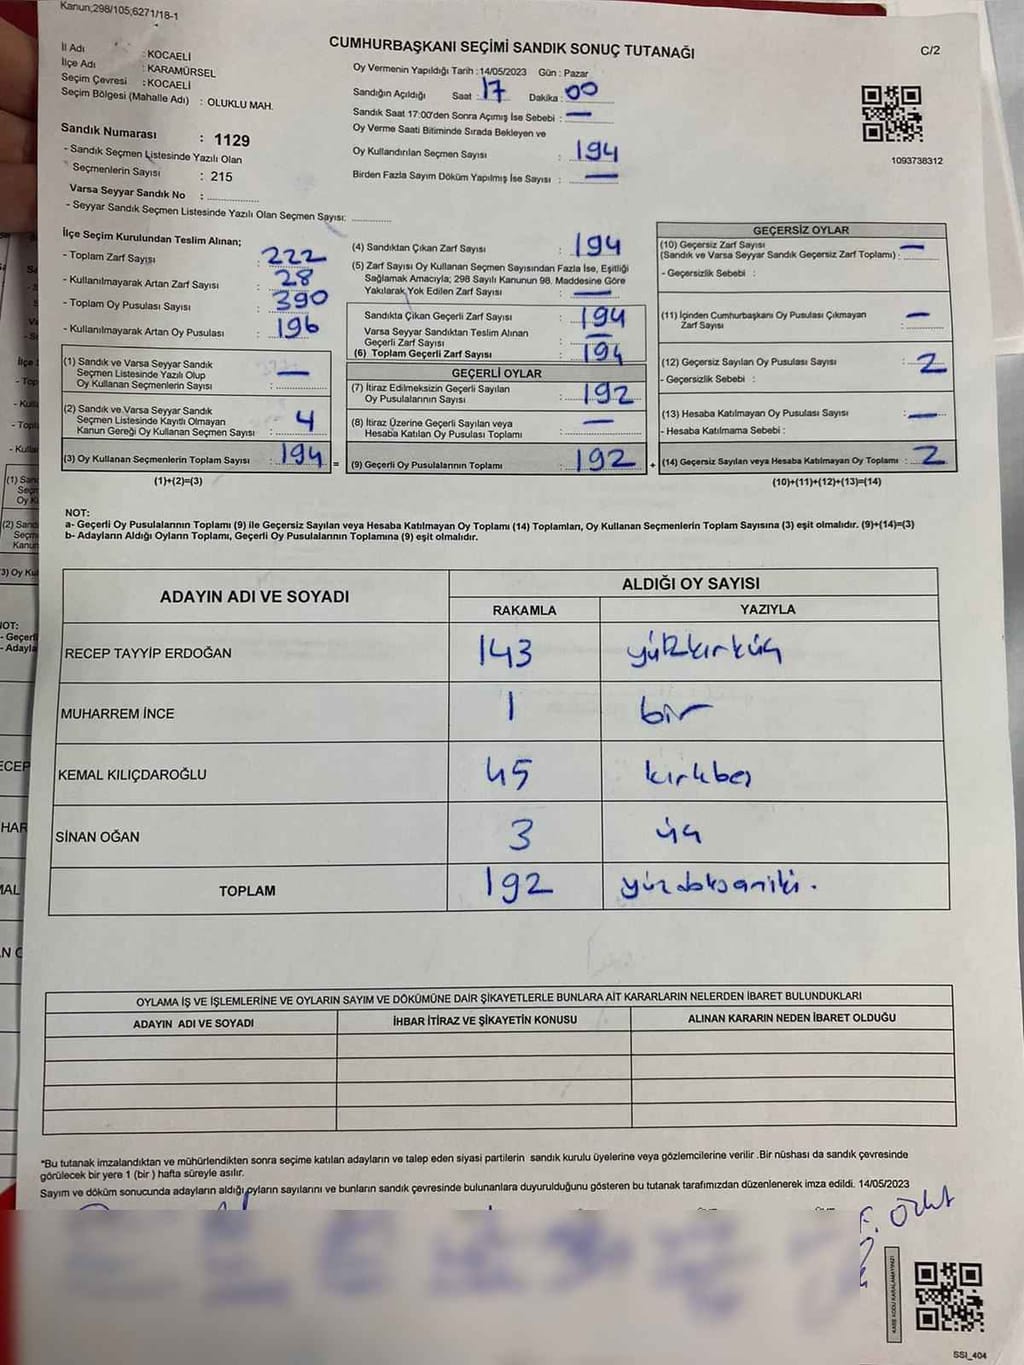 Kanun;298/105;6271/18-1
CUMHURBAŞKANI SEÇİMİ SANDIK SONUÇ TUTANAĞI
C/2
İl Adı : KOCAELİ
İlçe Adı : KARAMÜRSEL
Seçim Çevresi : KOCAELİ
Seçim Bölgesi (Mahalle Adı) : OLUKLU MAH.
Sandık Numarası : 1129
- Sandık Seçmen Listesinde Yazılı Olan
Seçmenlerin Sayısı : 215
Varsa Seyyar Sandık No :
- Seyyar Sandık Seçmen Listesinde Yazılı Olan Seçmen Sayısı:
Oy Vermenin Yapıldığı Tarih :14/05/2023 Gün : Pazar
Sandığın Açıldığı Saat : 17 Dakika : 00
Sandık Saat 17:00'den Sonra Açımış İse Sebebi : —
Oy Verme Saati Bitiminde Sırada Bekleyen ve
Oy Kullandırılan Seçmen Sayısı : 194
Birden Fazla Sayım Döküm Yapılmış İse Sayısı : —
1093738312
İlçe Seçim Kurulundan Teslim Alınan;
- Toplam Zarf Sayısı : 222
- Kullanılmayarak Artan Zarf Sayısı : 28
- Toplam Oy Pusulası Sayısı : 390
- Kullanılmayarak Artan Oy Pusulası : 196
(1) Sandık ve Varsa Seyyar Sandık
Seçmen Listesinde Yazılı Olup
Oy Kullanan Seçmenlerin Sayısı : —
(2) Sandık ve Varsa Seyyar Sandık
Seçmen Listesinde Kayıtlı Olmayan
Kanun Gereği Oy Kullanan Seçmen Sayısı : 4
(3) Oy Kullanan Seçmenlerin Toplam Sayısı : 194 =
(1)+(2)=(3)
(4) Sandıktan Çıkan Zarf Sayısı : 194
(5) Zarf Sayısı Oy Kullanan Seçmen Sayısından Fazla İse, Eşitliği
Sağlamak Amacıyla; 298 Sayılı Kanunun 98. Maddesine Göre
Yakılarak Yok Edilen Zarf Sayısı : —
Sandıkta Çıkan Geçerli Zarf Sayısı : 194
Varsa Seyyar Sandıktan Teslim Alınan
Geçerli Zarf Sayısı : —
(6) Toplam Geçerli Zarf Sayısı : 194
GEÇERLİ OYLAR
(7) İtiraz Edilmeksizin Geçerli Sayılan
Oy Pusulalarının Sayısı : 192
(8) İtiraz Üzerine Geçerli Sayılan veya
Hesaba Katılan Oy Pusulası Toplamı : —
(9) Geçerli Oy Pusulalarının Toplamı : 192 +
GEÇERSİZ OYLAR
(10) Geçersiz Zarf Sayısı
(Sandık ve Varsa Seyyar Sandık Geçersiz Zarf Toplamı) : —
- Geçersizlik Sebebi :
(11) İçinden Cumhurbaşkanı Oy Pusulası Çıkmayan
Zarf Sayısı : —
(12) Geçersiz Sayılan Oy Pusulası Sayısı : 2
- Geçersizlik Sebebi :
(13) Hesaba Katılmayan Oy Pusulası Sayısı : —
- Hesaba Katılmama Sebebi :
(14) Geçersiz Sayılan veya Hesaba Katılmayan Oy Toplamı : 2
(10)+(11)+(12)+(13)=(14)
NOT:
a- Geçerli Oy Pusulalarının Toplamı (9) ile Geçersiz Sayılan veya Hesaba Katılmayan Oy Toplamı (14) Toplamları, Oy Kullanan Seçmenlerin Toplam Sayısına (3) eşit olmalıdır. (9)+(14)=(3)
b- Adayların Aldığı Oyların Toplamı, Geçerli Oy Pusulalarının Toplamına (9) eşit olmalıdır.
ADAYIN ADI VE SOYADI ALDIĞI OY SAYISI
RAKAMLA YAZIYLA
RECEP TAYYİP ERDOĞAN 143 yüzkırküç
MUHARREM İNCE 1 bir
KEMAL KILIÇDAROĞLU 45 kırkbeş
SİNAN OĞAN 3 üç
TOPLAM 192 yüzdoksaniki.
OYLAMA İŞ VE İŞLEMLERİNE VE OYLARIN SAYIM VE DÖKÜMÜNE DAİR ŞİKAYETLERLE BUNLARA AİT KARARLARIN NELERDEN İBARET BULUNDUKLARI
ADAYIN ADI VE SOYADI İHBAR İTİRAZ VE ŞİKAYETİN KONUSU ALINAN KARARIN NEDEN İBARET OLDUĞU
*Bu tutanak imzalandıktan ve mühürlendikten sonra seçime katılan adayların ve talep eden siyasi partilerin sandık kurulu üyelerine veya gözlemcilerine verilir .Bir nüshası da sandık çevresinde
görülecek bir yere 1 (bir ) hafta süreyle asılır.
Sayım ve döküm sonucunda adayların aldığı oyların sayılarını ve bunların sandık çevresinde bulunanlara duyurulduğunu gösteren bu tutanak tarafımızdan düzenlenerek imza edildi. 14/05/2023
SSI_404